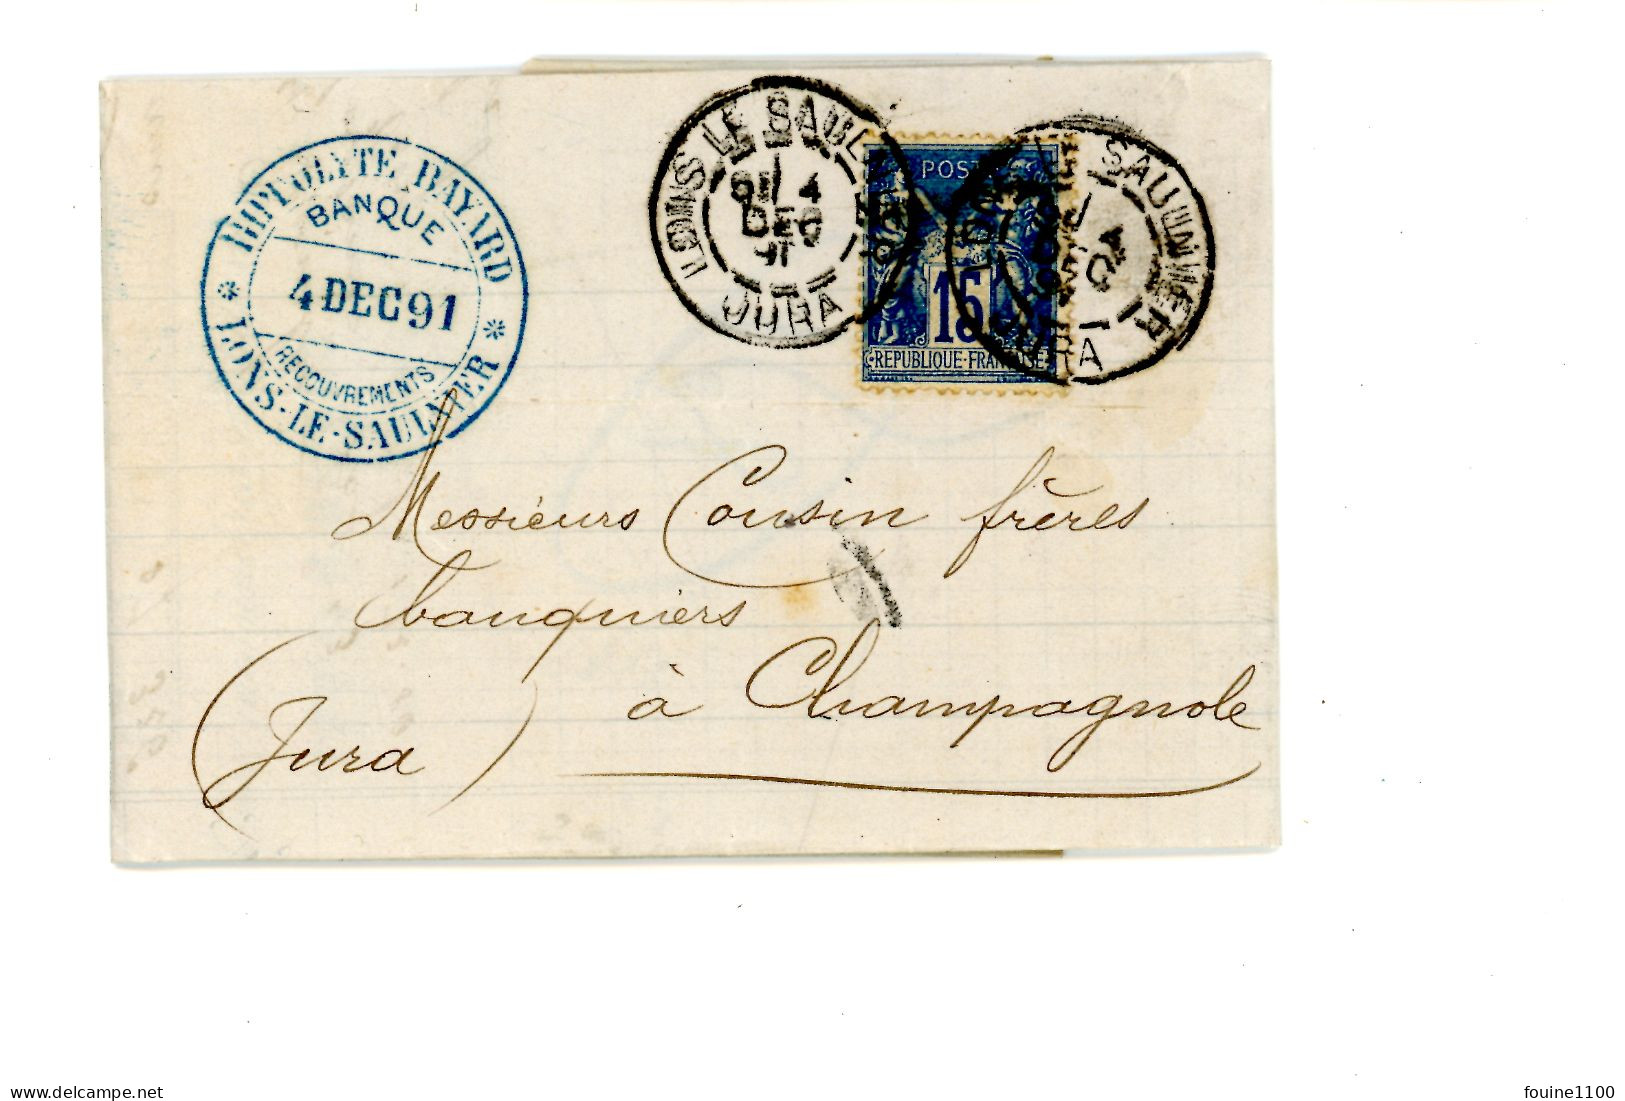 HIPPOLYTE BAYARD
BANQUE
4 DEC 91
RECOUVREMENTS
* LONS-LE-SAULNIER *
LONS LE SAULNIER
4
DEC
91
JURA
POSTES
15
REPUBLIQUE FRANÇAISE
LE SAULNIER
4
DEC
JURA
Messieurs Cousin frères
banquiers
à Champagnole
(Jura)
www.delcampe.net
fouine1100